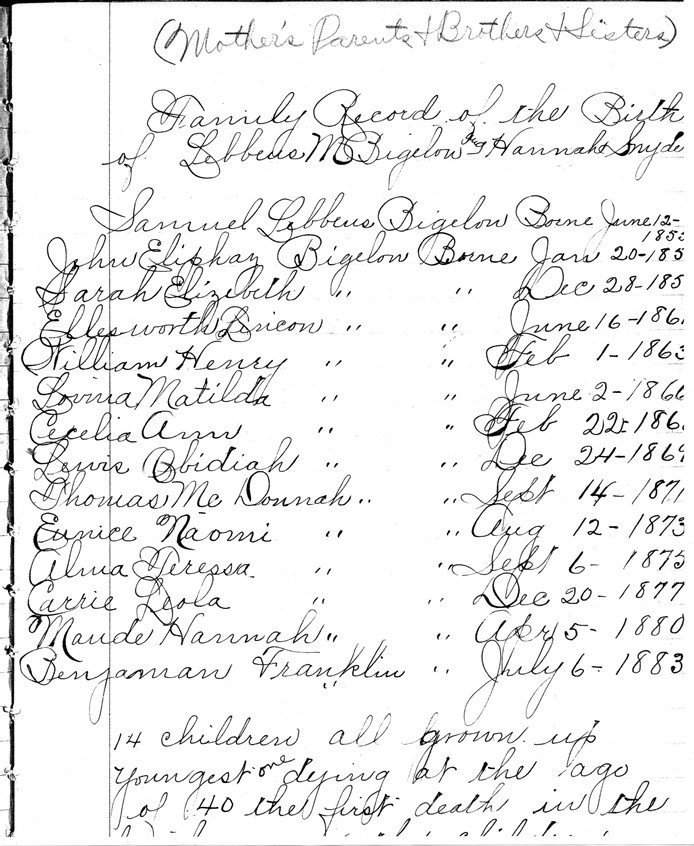 (Mother's Parents & Brothers & Sisters)
Family Record of the Birth
of Lebbeus M Bigelow Hannah Snyde
Samuel Lebbeus Bigelow Borne June 12-
185
John Eliphaz Bigelow Borne Jan 20-185
Sarah Elizebeth " " Dec 28-185
Ellesworth Lincon " " June 16-186
William Henry " " Feb 1-1863
Lovina Matilda " " June 2-1866
Cecelia Ann " " Feb 22-186
Lewis Obidiah " " Dec 24-1869
Thomas Mc Donnah " " Sept 14-1871
Eunice Naomi " " Aug 12-1873
Alma Teressa " " Sept 6-1875
Carrie Leola " " Dec 20-1877
Maude Hannah " " Apr 5-1880
Benjaman Franklin " " July 6-1883
14 children all grown up
youngest one dying at the age
of 40 the first death in the